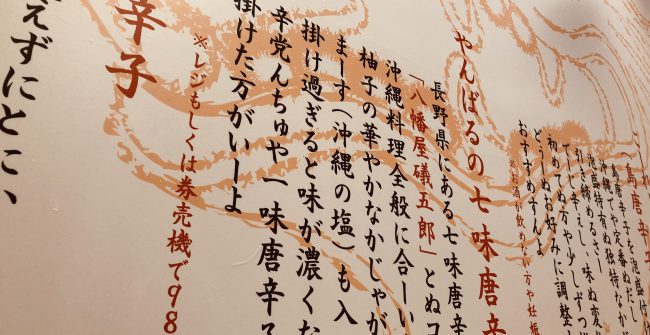 これ
「島唐辛子
島唐辛子を泡盛
沖縄でや定番ぬだし
泡盛特有ぬ独特なか
引き締めるさー。味ぬ変
でーじ辛えし、少しずつ
初めてぬ方や
どうぞお好みに調整
おすすめすんよ
やんばるの七味唐辛
長野県にある七味唐辛
「八幡屋礒五郎」とぬコ
沖縄料理全般に合ーい
柚子の華やかなかじゃが
まーす(沖縄の塩)も入
掛け過ぎると味が濃くな
辛党んちゅや一味唐辛子
掛けた方がいーよ
※レジもしくは券売機で98
辛子
えずにとこ、